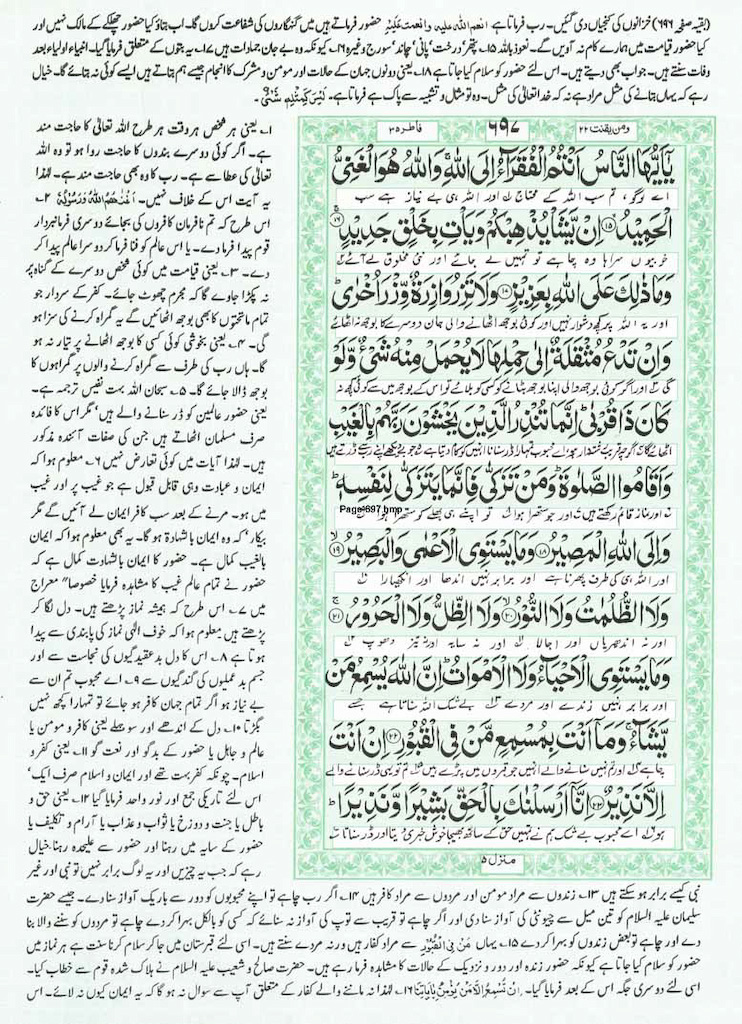 (بقیہ صفحہ ۶۹۶) خزانوں کی کنجیاں دی گئیں۔ رب فرماتا ہے انعم اللہ علیہ وانعمت علیہ حضور فرماتے ہیں میں گنہگاروں کی شفاعت کروں گا۔ اب بتاؤ کیا حضور چھلکے کے مالک نہیں اور
کیا حضور قیامت میں ہمارے کام نہ آویں گے۔ نعوذ باللہ ۱۵۔ پتھر، درخت، پانی، چاند، سورج وغیرہ ۱۶۔ کیونکہ وہ بے جان جمادات ہیں ۱۷۔ یہ بتوں کے متعلق فرمایا گیا۔ انبیاء اولیاء بعد
وفات سنتے ہیں۔ جواب بھی دیتے ہیں۔ اس لئے حضور کو سلام کیا جاتا ہے ۱۸۔ یعنی دونوں جہان کے حالات اور مومن و مشرک کا انجام جیسے ہم بتاتے ہیں ایسے کوئی نہ بتائے گا۔ خیال
رہے کہ یہاں بتانے کی مثل مراد ہے نہ کہ خدا تعالیٰ کی مثل۔ وہ تو مثل و تشبیہ سے پاک ہے فرماتا ہے۔ لَیْسَ کَمِثْلِہٖ شَیْءٌ۔
ومن یقنت ۲۲
۶۹۷
فاطر ۳۵
يٰٓاَيُّهَا النَّاسُ اَنْتُمُ الْفُقَرَآءُ اِلَى اللّٰهِ ۚ وَاللّٰهُ هُوَ الْغَنِيُّ
اے لوگو، تم سب اللہ کے محتاج اور اللہ ہی بے نیاز ہے سب
الْحَمِيْدُ ⑮ اِنْ يَّشَاْ يُذْهِبْكُمْ وَيَاْتِ بِخَلْقٍ جَدِيْدٍ ⑯
خوبیوں سراہا وہ چاہے تو تمہیں لے جائے اور نئی مخلوق لے آئے
وَمَا ذٰلِكَ عَلَى اللّٰهِ بِعَزِيْزٍ ⑰ وَلَا تَزِرُ وَازِرَةٌ وِّزْرَ اُخْرٰى ۭ
اور یہ اللہ پر کچھ دشوار نہیں اور کوئی بوجھ اٹھانے والی جان دوسرے کا بوجھ نہ اٹھائے
وَاِنْ تَدْعُ مُثْقَلَةٌ اِلٰى حِمْلِهَا لَا يُحْمَلْ مِنْهُ شَيْءٌ وَّلَوْ
گی اور اگر کوئی بوجھ والی اپنا بوجھ بٹانے کو کسی کو بلائے تو اس کے بوجھ میں سے کوئی کچھ نہ
كَانَ ذَا قُرْبٰى ۭ اِنَّمَا تُنْذِرُ الَّذِيْنَ يَخْشَوْنَ رَبَّهُمْ بِالْغَيْبِ
اٹھائے گا اگرچہ قریب رشتہ دار ہو اے محبوب تمہارا ڈر سنانا انہیں کو کام دیتا ہے جو بے دیکھے اپنے رب سے ڈرتے ہیں
وَاَقَامُوا الصَّلٰوةَ ۭ وَمَنْ تَزَكّٰى فَاِنَّمَا يَتَزَكّٰى لِنَفْسِهٖ ۭ
اور نماز قائم رکھتے ہیں اور جو ستھرا ہوا تو اپنے ہی بھلے کو ستھرا ہوا
Page-697.bmp
وَاِلَى اللّٰهِ الْمَصِيْرُ ⑱ وَمَا يَسْتَوِي الْاَعْمٰى وَالْبَصِيْرُ ⑲
اور اللہ ہی کی طرف پھرنا ہے اور برابر نہیں اندھا اور انکھیارا
وَلَا الظُّلُمٰتُ وَلَا النُّوْرُ ⑳ وَلَا الظِّلُّ وَلَا الْحَرُوْرُ ㉑
اور نہ اندھیریاں اور اجالا اور نہ سایہ اور نہ تیز دھوپ
وَمَا يَسْتَوِي الْاَحْيَآءُ وَلَا الْاَمْوَاتُ ۭ اِنَّ اللّٰهَ يُسْمِعُ مَنْ
اور برابر نہیں زندے اور مردے بے شک اللہ سناتا ہے جسے
يَّشَآءُ ۚ وَمَآ اَنْتَ بِمُسْمِعٍ مَّنْ فِي الْقُبُوْرِ ㉒ اِنْ اَنْتَ
چاہے اور تم نہیں سنانے والے انہیں جو قبروں میں پڑے ہیں تم تو یہی ڈر سنانے والے
اِلَّا نَذِيْرٌ ㉓ اِنَّآ اَرْسَلْنٰكَ بِالْحَقِّ بَشِيْرًا وَّنَذِيْرًا ۭ
ہو اے محبوب بے شک ہم نے تمہیں حق کے ساتھ بھیجا خوش خبری دیتا اور ڈر سناتا
منزل ۵
۱۔ یعنی ہر شخص ہر وقت ہر طرح اللہ تعالیٰ کا حاجت مند
ہے۔ اگر کوئی دوسرے بندوں کا حاجت روا ہو تو وہ اللہ
تعالیٰ کی عطا سے ہے۔ رب کا وہ بھی حاجت مند ہے۔ لہٰذا
یہ آیت اس کے خلاف نہیں۔ اَغْنٰہُمُ اللہُ وَرَسُوْلُہٗ ۲۔
اس طرح کہ تم نافرمان کافروں کی بجائے دوسری فرمانبردار
قوم پیدا فرما دے۔ یا اس عالم کو فنا کر کے دوسرا عالم پیدا کر
دے۔ ۳۔ یعنی قیامت میں کوئی شخص دوسرے کے گناہ پر
نہ پکڑا جاوے گا کہ مجرم چھوٹ جائے۔ کفر کے سردار جو
تمام ماتحتوں کا بھی بوجھ اٹھائیں گے یہ گمراہ کرنے کی سزا ہو
گی۔ ۴۔ یعنی بخوشی کوئی کسی کا بوجھ اٹھانے پر تیار نہ ہو
گا۔ ہاں رب کی طرف سے گمراہ کرنے والوں پر گمراہوں کا
بوجھ ڈالا جائے گا۔ ۵۔ سبحان اللہ بہت نفیس ترجمہ ہے۔
یعنی حضور عالمین کو ڈر سنانے والے ہیں، مگر اس کا فائدہ
صرف مسلمان اٹھاتے ہیں جن کی صفات آئندہ مذکور
ہیں۔ لہٰذا آیات میں کوئی تعارض نہیں ۶۔ معلوم ہوا کہ
ایمان و عبادت وہی قابل قبول ہے جو غیب پر اور غیب
میں ہو۔ مرنے کے بعد سب کافر ایمان لے آئیں گے مگر
بیکار، کہ وہ ایمان بالشہادۃ ہو گا۔ یہ بھی معلوم ہوا کہ ایمان
بالغیب کمال ہے۔ حضور کا ایمان بالشہادت کمال ہے کہ
حضور نے تمام عالم غیب کا مشاہدہ فرمایا خصوصا" معراج
میں ۷۔ اس طرح کہ ہمیشہ نماز پڑھتے ہیں۔ دل لگا کر
پڑھتے ہیں معلوم ہوا کہ خوف الٰہی نماز کی پابندی سے پیدا
ہوتا ہے ۸۔ اس کا دل بدعقیدگیوں کی نجاست سے اور
جسم بدعملیوں کی گندگیوں سے ۹۔ اے محبوب تم ان سے
بے نیاز ہو اگر تمام جہان کافر ہو جائے تو تمہارا کچھ نہیں
بگڑتا ۱۰۔ دل کے اندھے اور سوجھلے یعنی کافر و مومن یا
عالم و جاہل یا حضور کے بدگو اور نعت گو ۱۱۔ یعنی کفر و
اسلام۔ چونکہ کفر بہت تھے اور ایمان و اسلام صرف ایک،
اس لئے تاریکی جمع اور نور واحد فرمایا گیا ۱۲۔ یعنی حق و
باطل یا جنت و دوزخ یا ثواب و عذاب یا آرام و تکلیف یا
حضور کے سایہ میں رہنا اور حضور سے علیحدہ رہنا۔ خیال
رہے کہ جب یہ چیزیں اور یہ لوگ برابر نہیں تو نبی اور غیر
نبی کیسے برابر ہو سکتے ہیں ۱۳۔ زندوں سے مراد مومن اور مردوں سے مراد کافر ہیں ۱۴۔ اگر رب چاہے تو اپنے محبوبوں کو دور سے باریک آواز سنا دے۔ جیسے حضرت
سلیمان علیہ السلام کو تین میل سے چیونٹی کی آواز سنا دی اور اگر چاہے تو قریب سے توپ کی آواز نہ سنائے کہ کسی کو بالکل بہرا کر دے چاہے تو مردوں کو سننے والا بنا
دے اور چاہے تو بعض زندوں کو بہرا کر دے ۱۵۔ یہاں مَنْ فِی الْقُبُوْرِ سے مراد کفار ہیں ورنہ مردے سنتے ہیں۔ اسی لئے قبرستان میں جا کر سلام کرنا سنت ہے ہر نماز میں
حضور کو سلام کیا جاتا ہے کیونکہ حضور زندہ اور دور و نزدیک کے حالات کا مشاہدہ فرما رہے ہیں۔ حضرت صالح و شعیب علیہ السلام نے ہلاک شدہ قوم سے خطاب کیا۔
اسی لئے دوسری جگہ اس کے بعد فرمایا گیا۔ اِنْ تُسْمِعُ اِلَّا مَنْ یُّؤْمِنُ بِاٰیٰتِنَا ۱۶۔ لہٰذا نہ ماننے والے کفار کے متعلق آپ سے سوال نہ ہو گا کہ یہ ایمان کیوں نہ لائے۔ اس